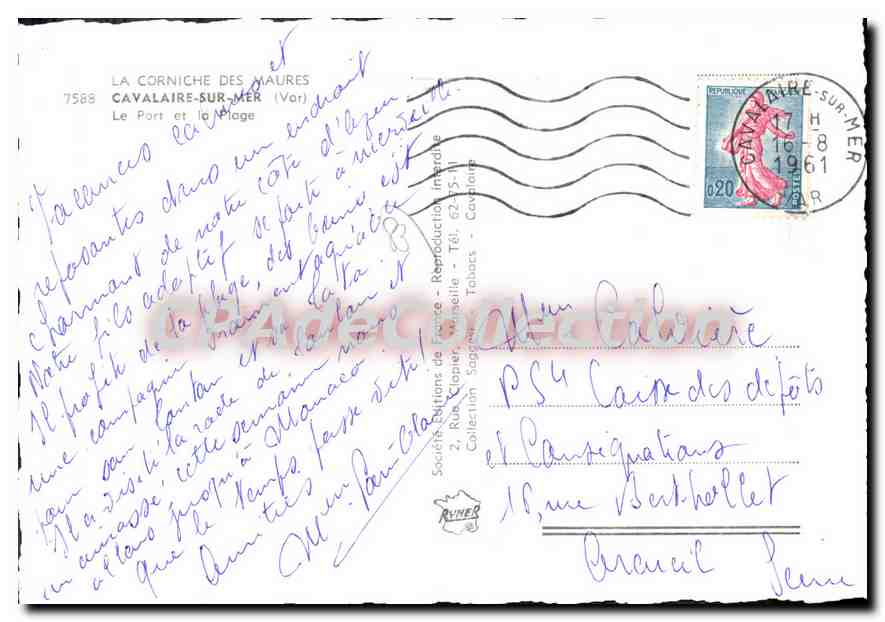 LA CORNICHE DES MAURES
7588 CAVALAIRE-SUR-MER (Var)
Le Port et la Plage
Vacances et
reposantes dans un endroit
charmant de notre côte d'Azur.
Notre fils adoptif se porte à merveille.
Il profite de la plage, des bains est
une compagnie vraiment agréable
pour son tonton et sa tata.
Il a visité la rade de Toulon et
un cuirassé, cette semaine nous
allons jusqu'à Monaco.
que le temps passe vite!
Amitiés
Société Editions de France - Reproduction interdite
2, Rue Clapier, Marseille - Tél. 62-75-11
Collection Saggese - Tabacs - Cavalaire
RYMER
REPUBLIQUE
0,20
POSTES
CAVALAIRE-SUR-MER
17 H
16-8
1961
VAR
CPAdeCollection
Calvière
PS4 Caisse des dépôts
et Consignations
18, rue Berthollet
Arcueil Seine